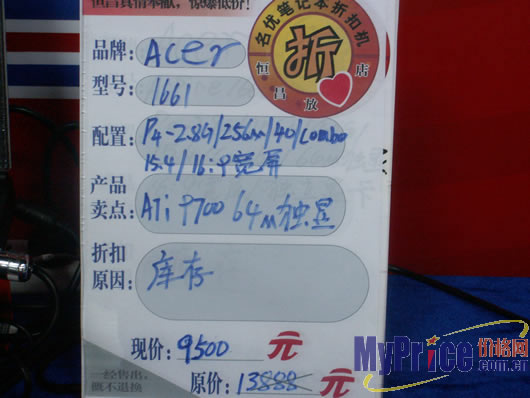 恒昌真情奉献,惊爆低价!
名优笔记本折扣机
折
恒昌放店
品牌: Acer
型号: 1661
配置: P4-2.8G/256M/40/combo
15.4/16:9宽屏
产品
卖点: ATi 9700 64M独显
折扣
原因: 库存
现价: 9500 元
原价: 13888 元
一经售出,
概不退换
MyPrice价格网
.com.cn